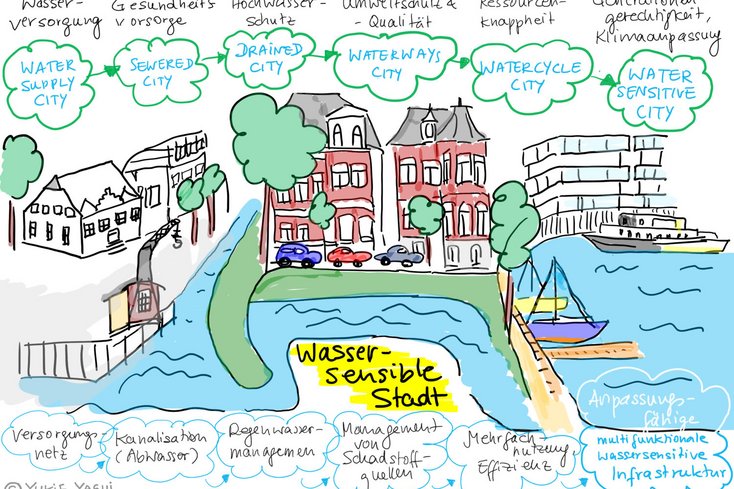 Wasser-
versorgung
Gesundheits
vorsorge
Hochwasser-
schutz
Umweltschutz &
-Qualität
Ressourcen-
knappheit
Generationen
gerechtigkeit,
Klimaanpassung
WATER
SUPPLY
CITY
SEWERED
CITY
DRAINED
CITY
WATERWAYS
CITY
WATERCYCLE
CITY
WATER
SENSITIVE
CITY
Wasser-
sensible
Stadt
Versorgungs
netz
Kanalisation
(Abwasser)
Regenwasser-
managemen
Management
von
Schadstoff-
quellen
Mehrfach-
nutzung,
Effizienz
Anpassungs-
fähige
multifunktionale
wassersensitive
Infrastruktur